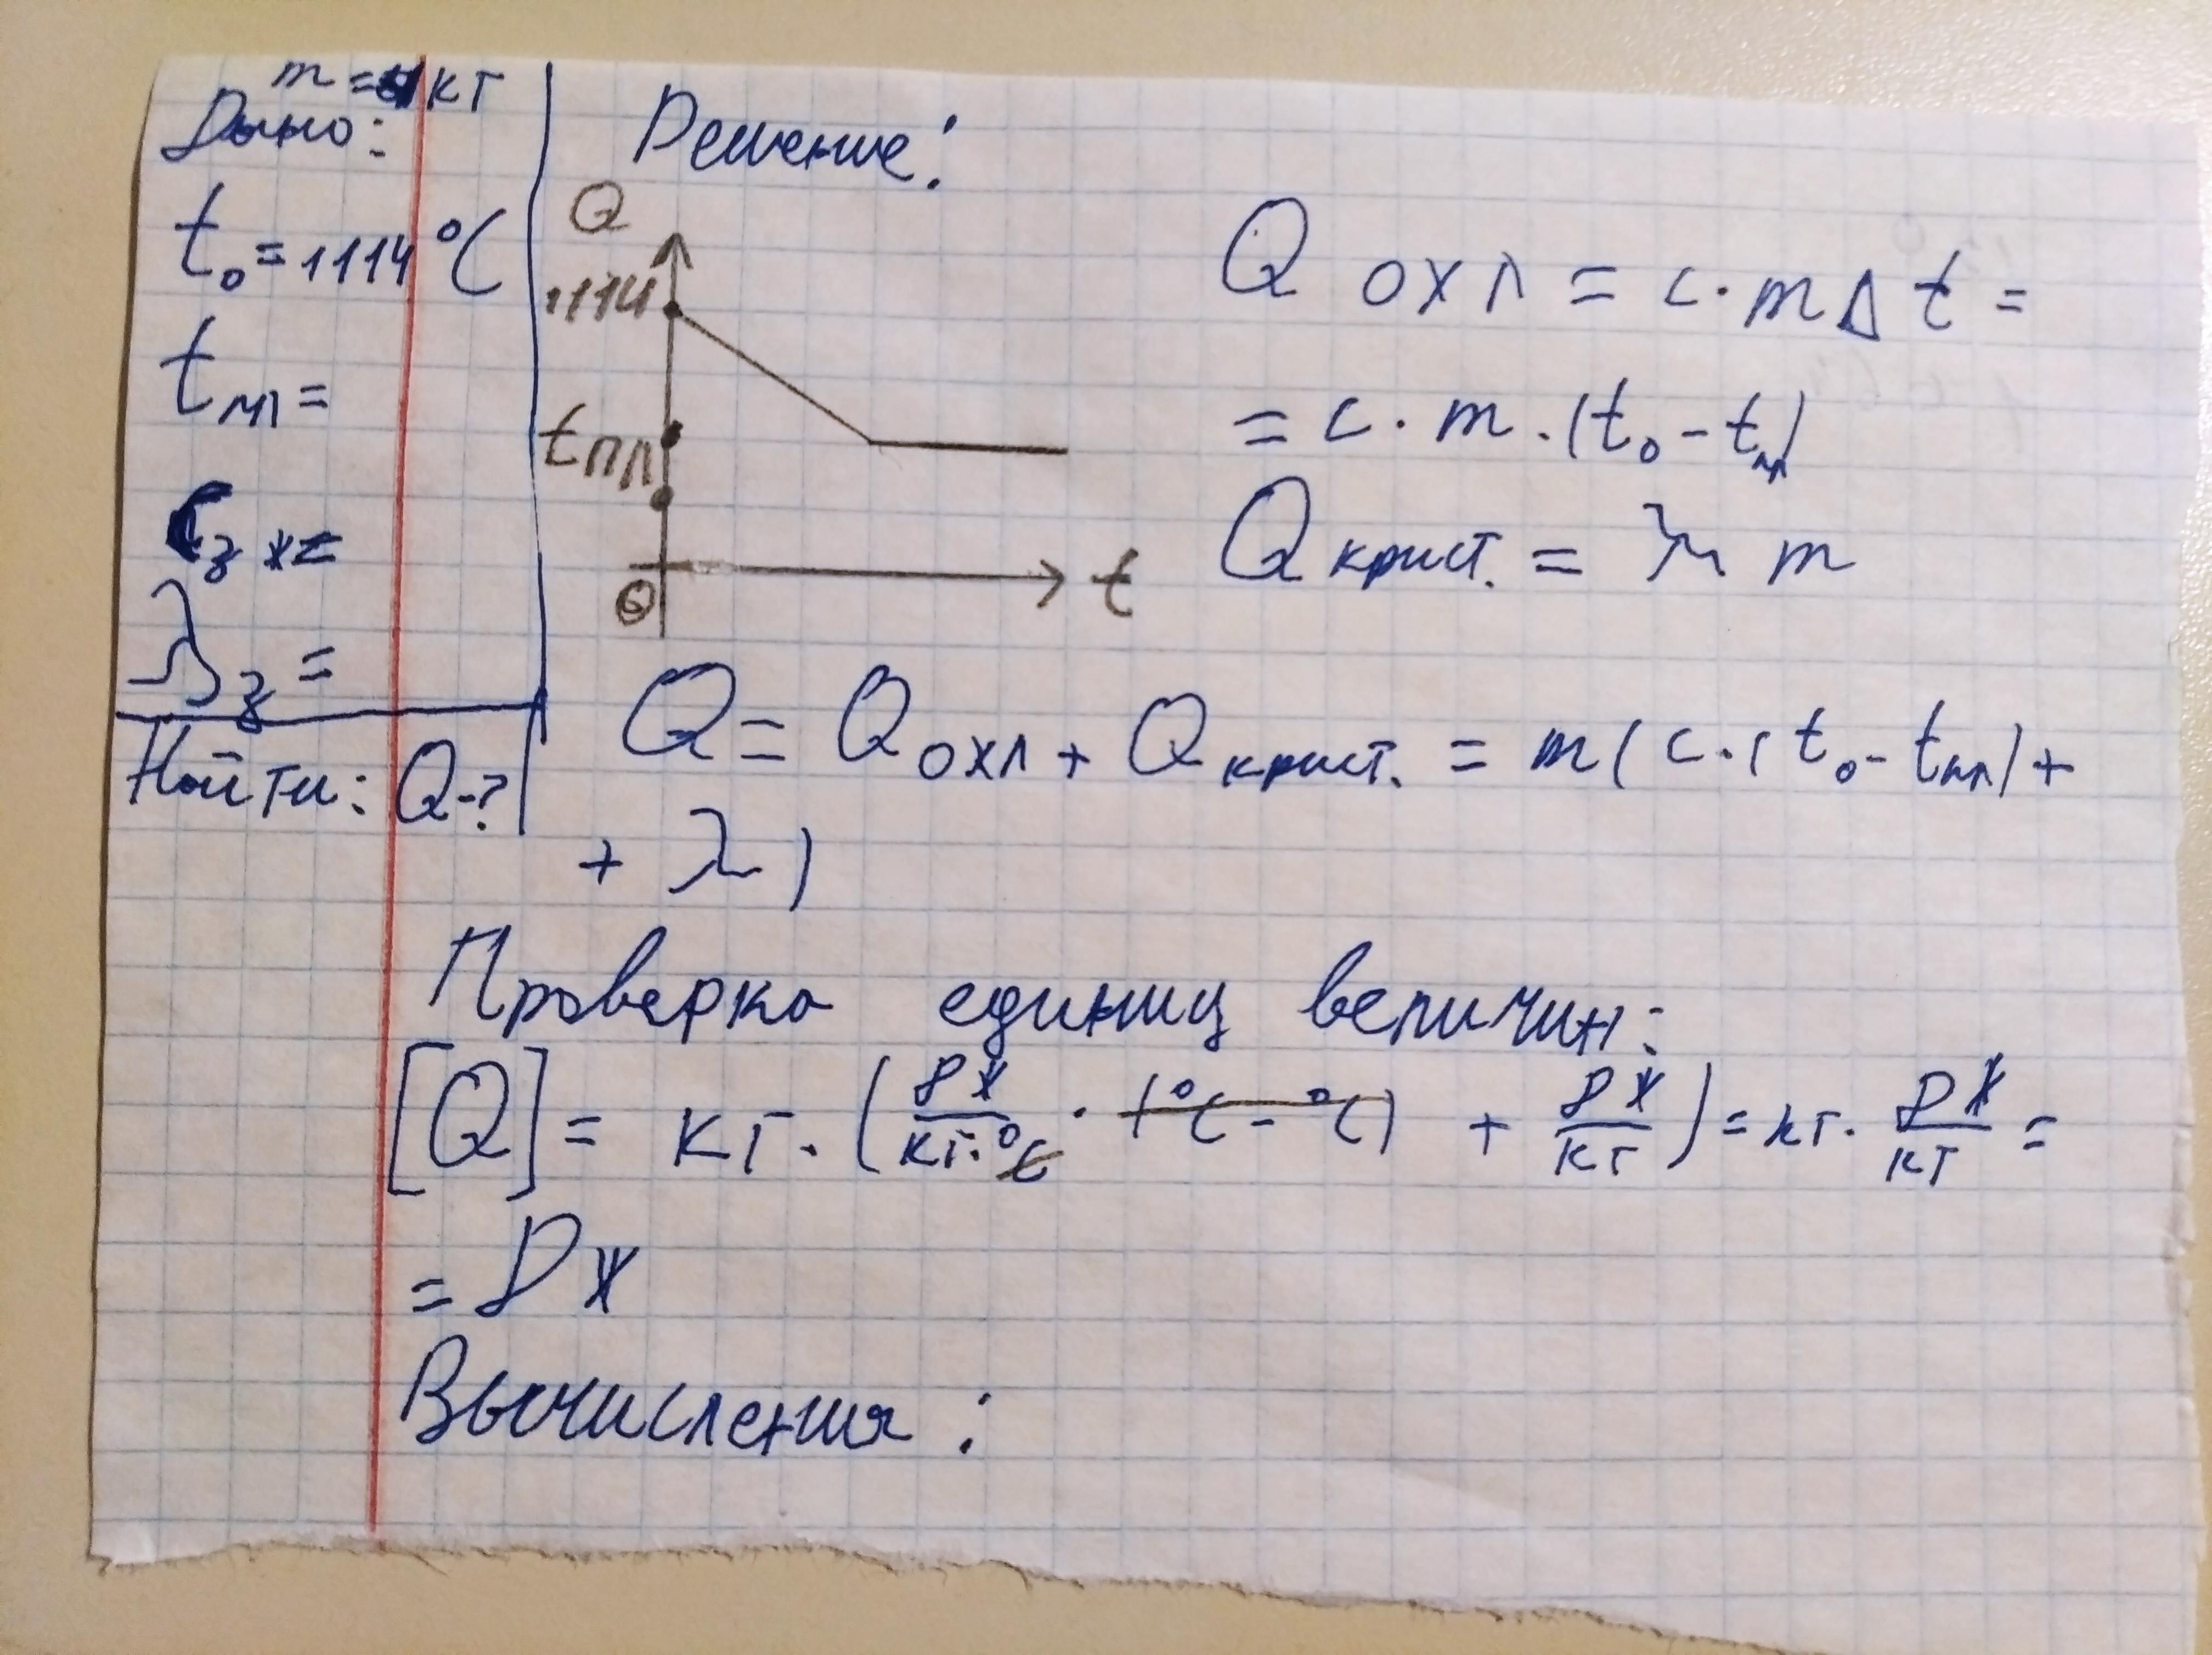 m = 1 кг
Дано:
t₀ = 1114 °C
tпл =
Cз ж =
λз =
Найти: Q-?
Решение:
Q
1114
tпл
0
t
Q охл = c · m Δ t =
= c · m · (t₀ - tпл)
Q крист. = λ m
Q = Q охл + Q крист. = m ( c · ( t₀ - tпл) +
+ λ )
Проверка единиц величин:
[Q] = кг · ( Дж/кг·°C · (°C - °C) + Дж/кг ) = кг · Дж/кг =
= Дж
Вычисления :